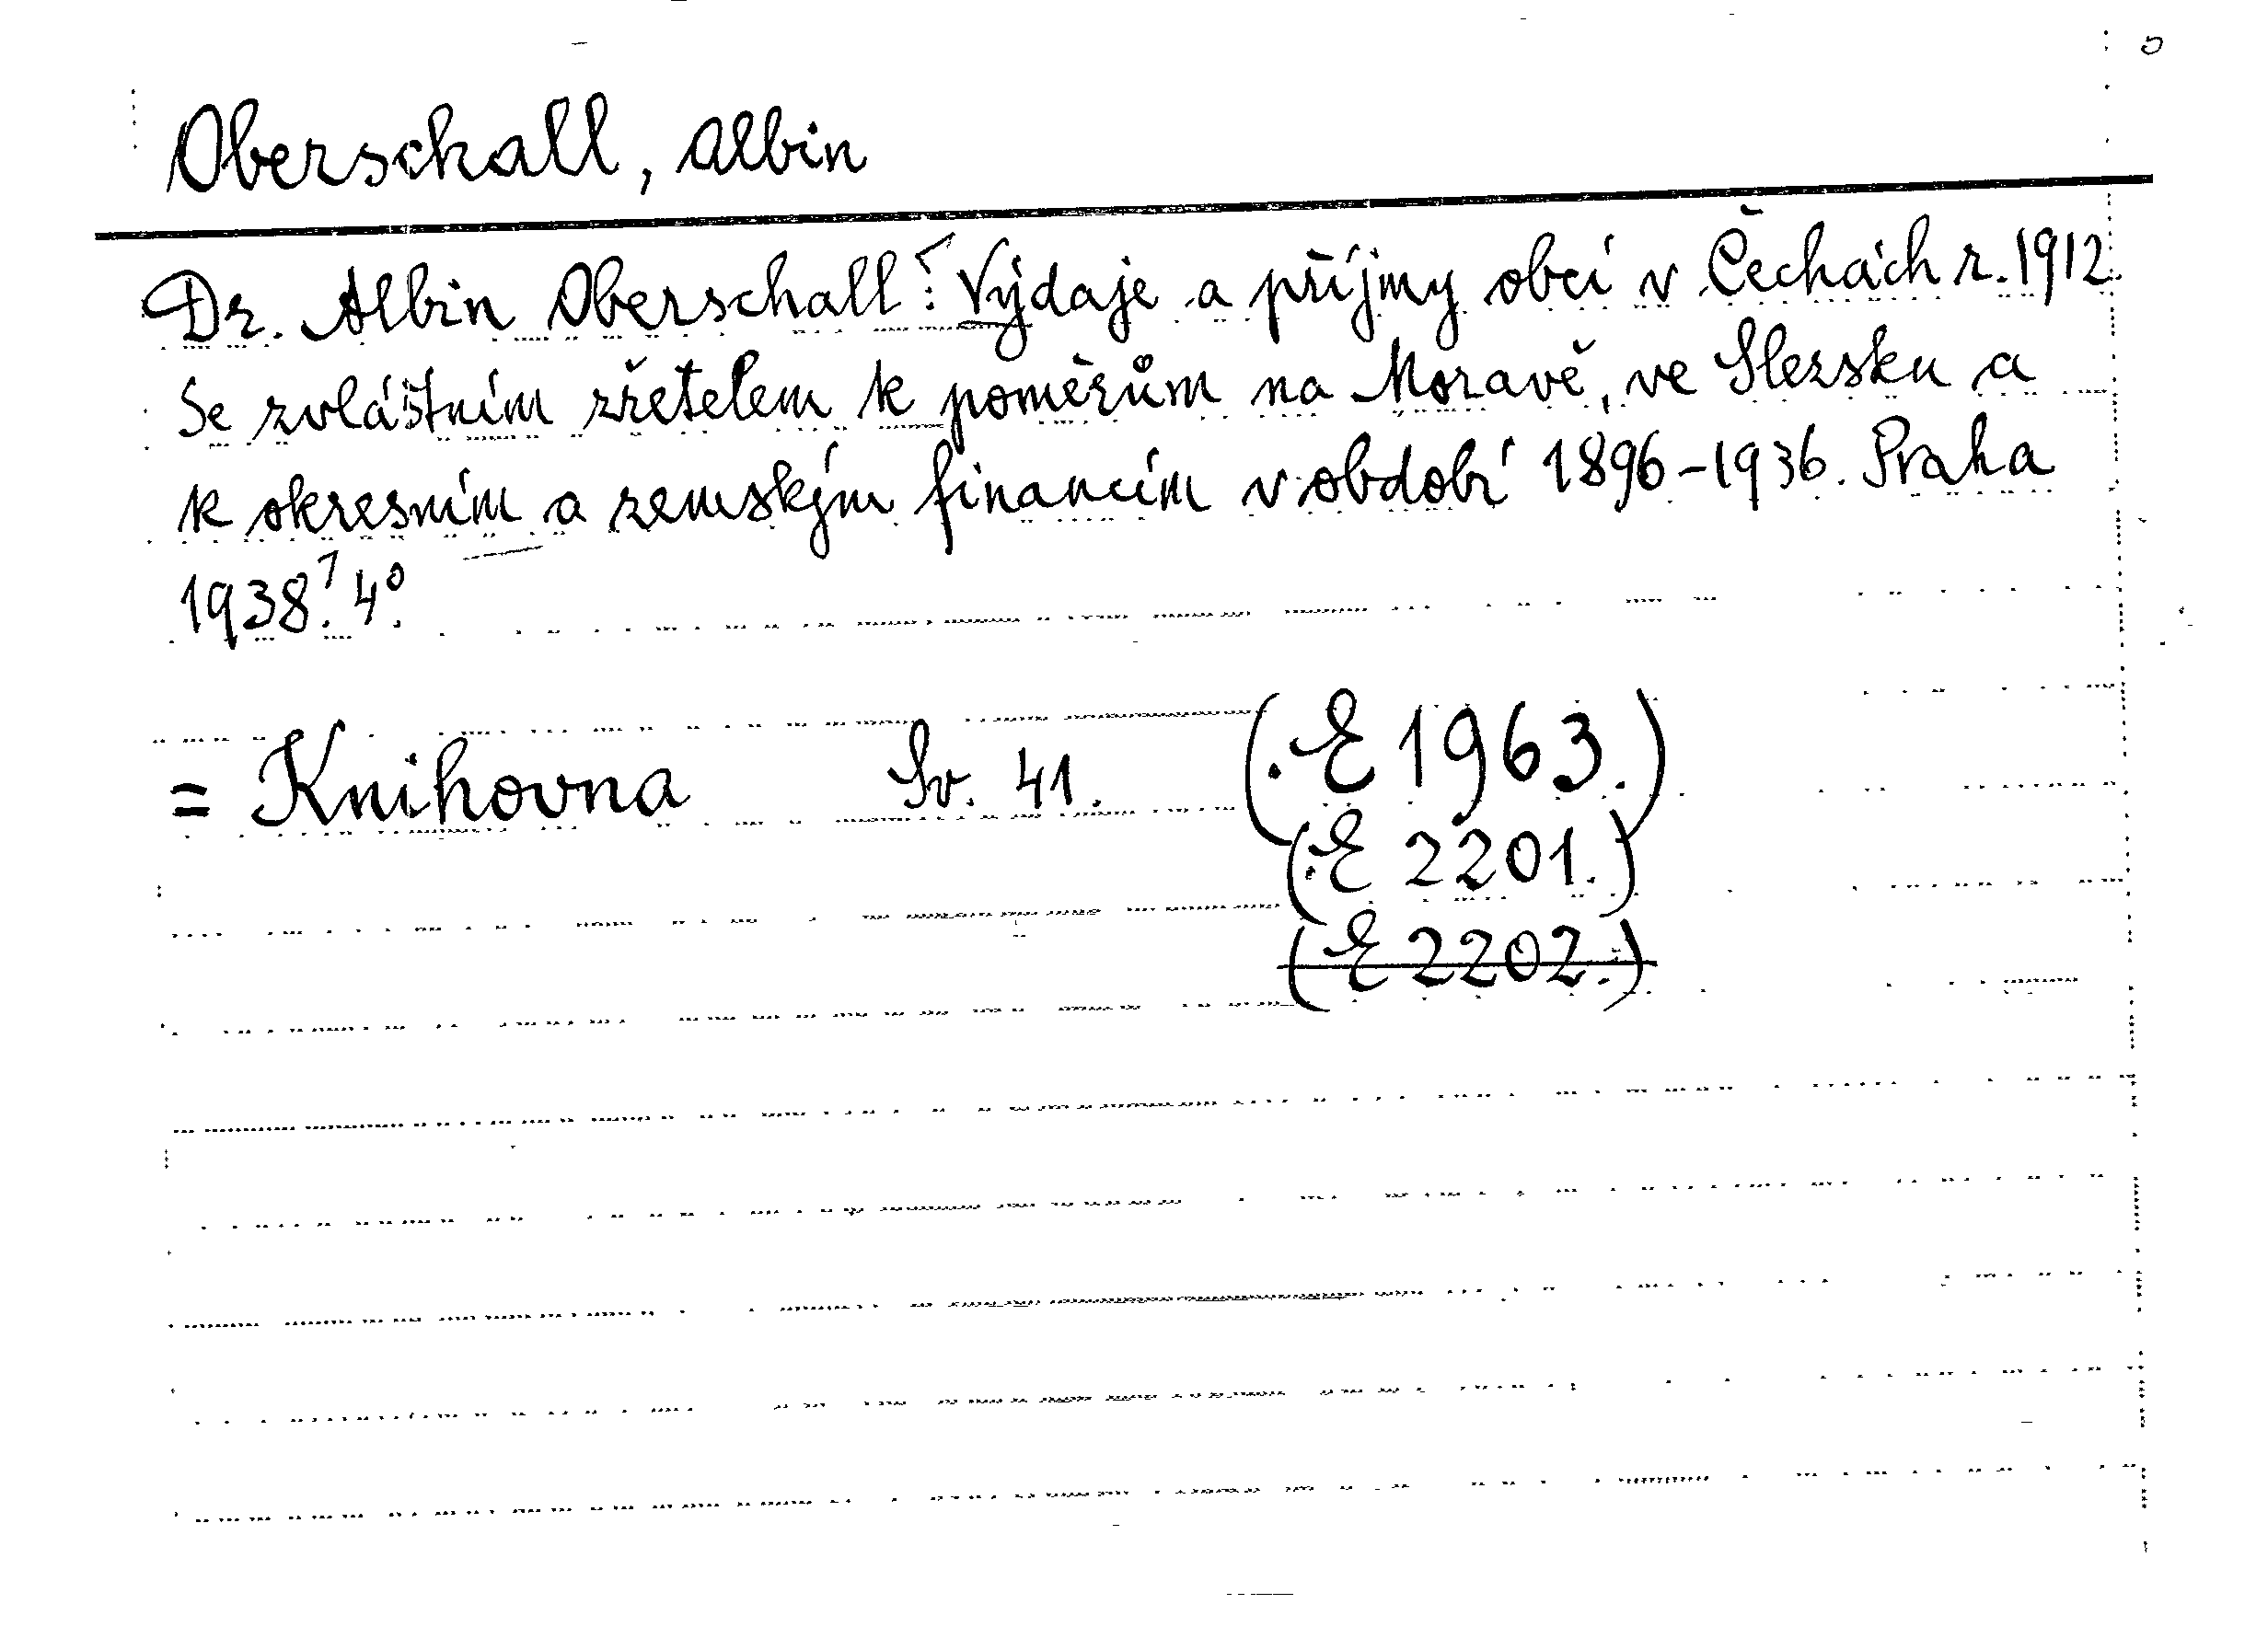 Oberschall, Albin
Dr. Albin Oberschall: Výdaje a příjmy obcí v Čechách r. 1912
se zvláštním zřetelem k poměrům na Moravě, ve Slezsku a
k okresním a zemským financím v období 1896-1936. Praha
1938. 4°.
= Knihovna Sv. 41. (E 1963.)
(E 2201.)
(E 2202.)